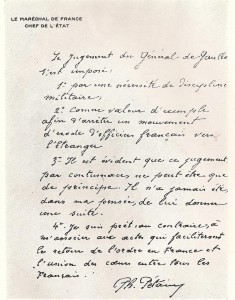 LE MARÉCHAL DE FRANCE
CHEF DE L'ÉTAT
Le jugement du Général de Gaulle
s'est imposé:
1° par une nécessité de discipline
militaire;
2° Comme valeur d'exemple
afin d'arrêter un mouvement
d'exode d'officiers français vers
l'étranger
3° Il est évident que ce jugement
par contumace ne peut être que
de principe. Il n'a jamais été
dans ma pensée, de lui donner
une suite.
4° Je suis prêt au contraire, à
m'associer aux actes qui faciliteront
le retour de l'ordre en France et
l'union des cœurs entre tous les
Français.
Ph. Pétain